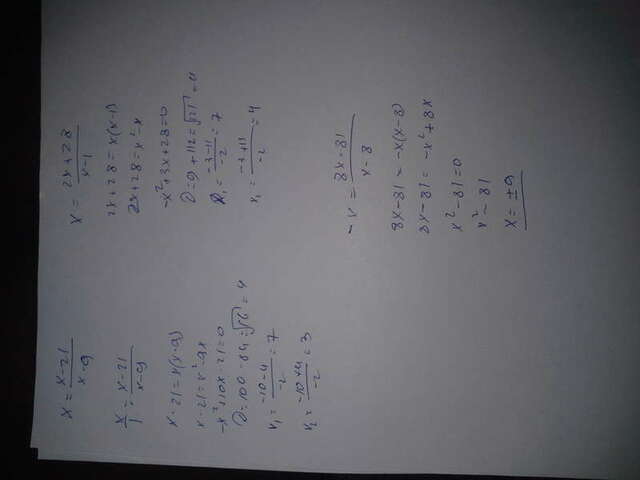 x = x-21 / x-9
x/1 = x-21 / x-9
x-21 = x(x-9)
x-21 = x²-9x
-x²+10x-21=0
D=100-84=√16=4
x₁ = -10-4 / -2 = 7
x₂ = -10+4 / -2 = 3
x = 2x+28 / x-1
2x+28=x(x-1)
2x+28=x²-x
-x²+3x+28=0
D=9+112=√121=11
x₁ = -3-11 / -2 = 7
x₁ = -3+11 / -2 = 4
-x = 8x-81 / x-8
8x-81 = -x(x-8)
8x-81 = -x²+8x
x²-81=0
x²=81
x=±9